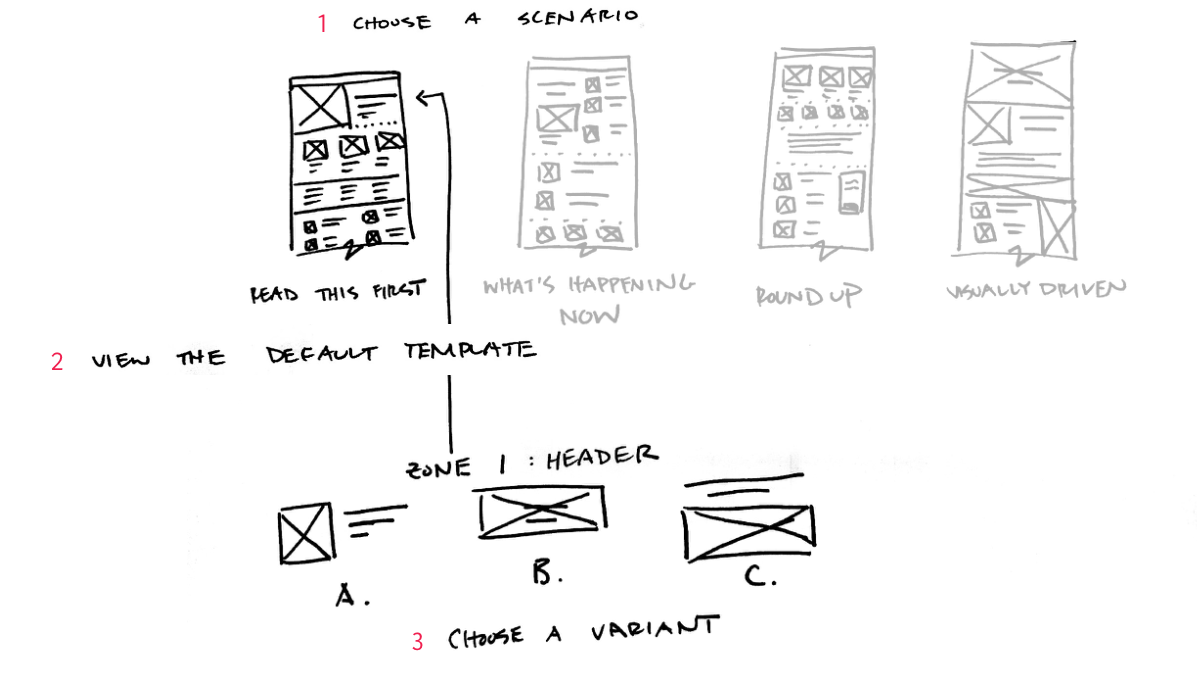 1 CHOOSE A SCENARIO
READ THIS FIRST
WHAT'S HAPPENING
NOW
ROUND UP
VISUALLY DRIVEN
2 VIEW THE DEFAULT TEMPLATE
ZONE 1 : HEADER
A.
B.
C.
3 CHOOSE A VARIANT